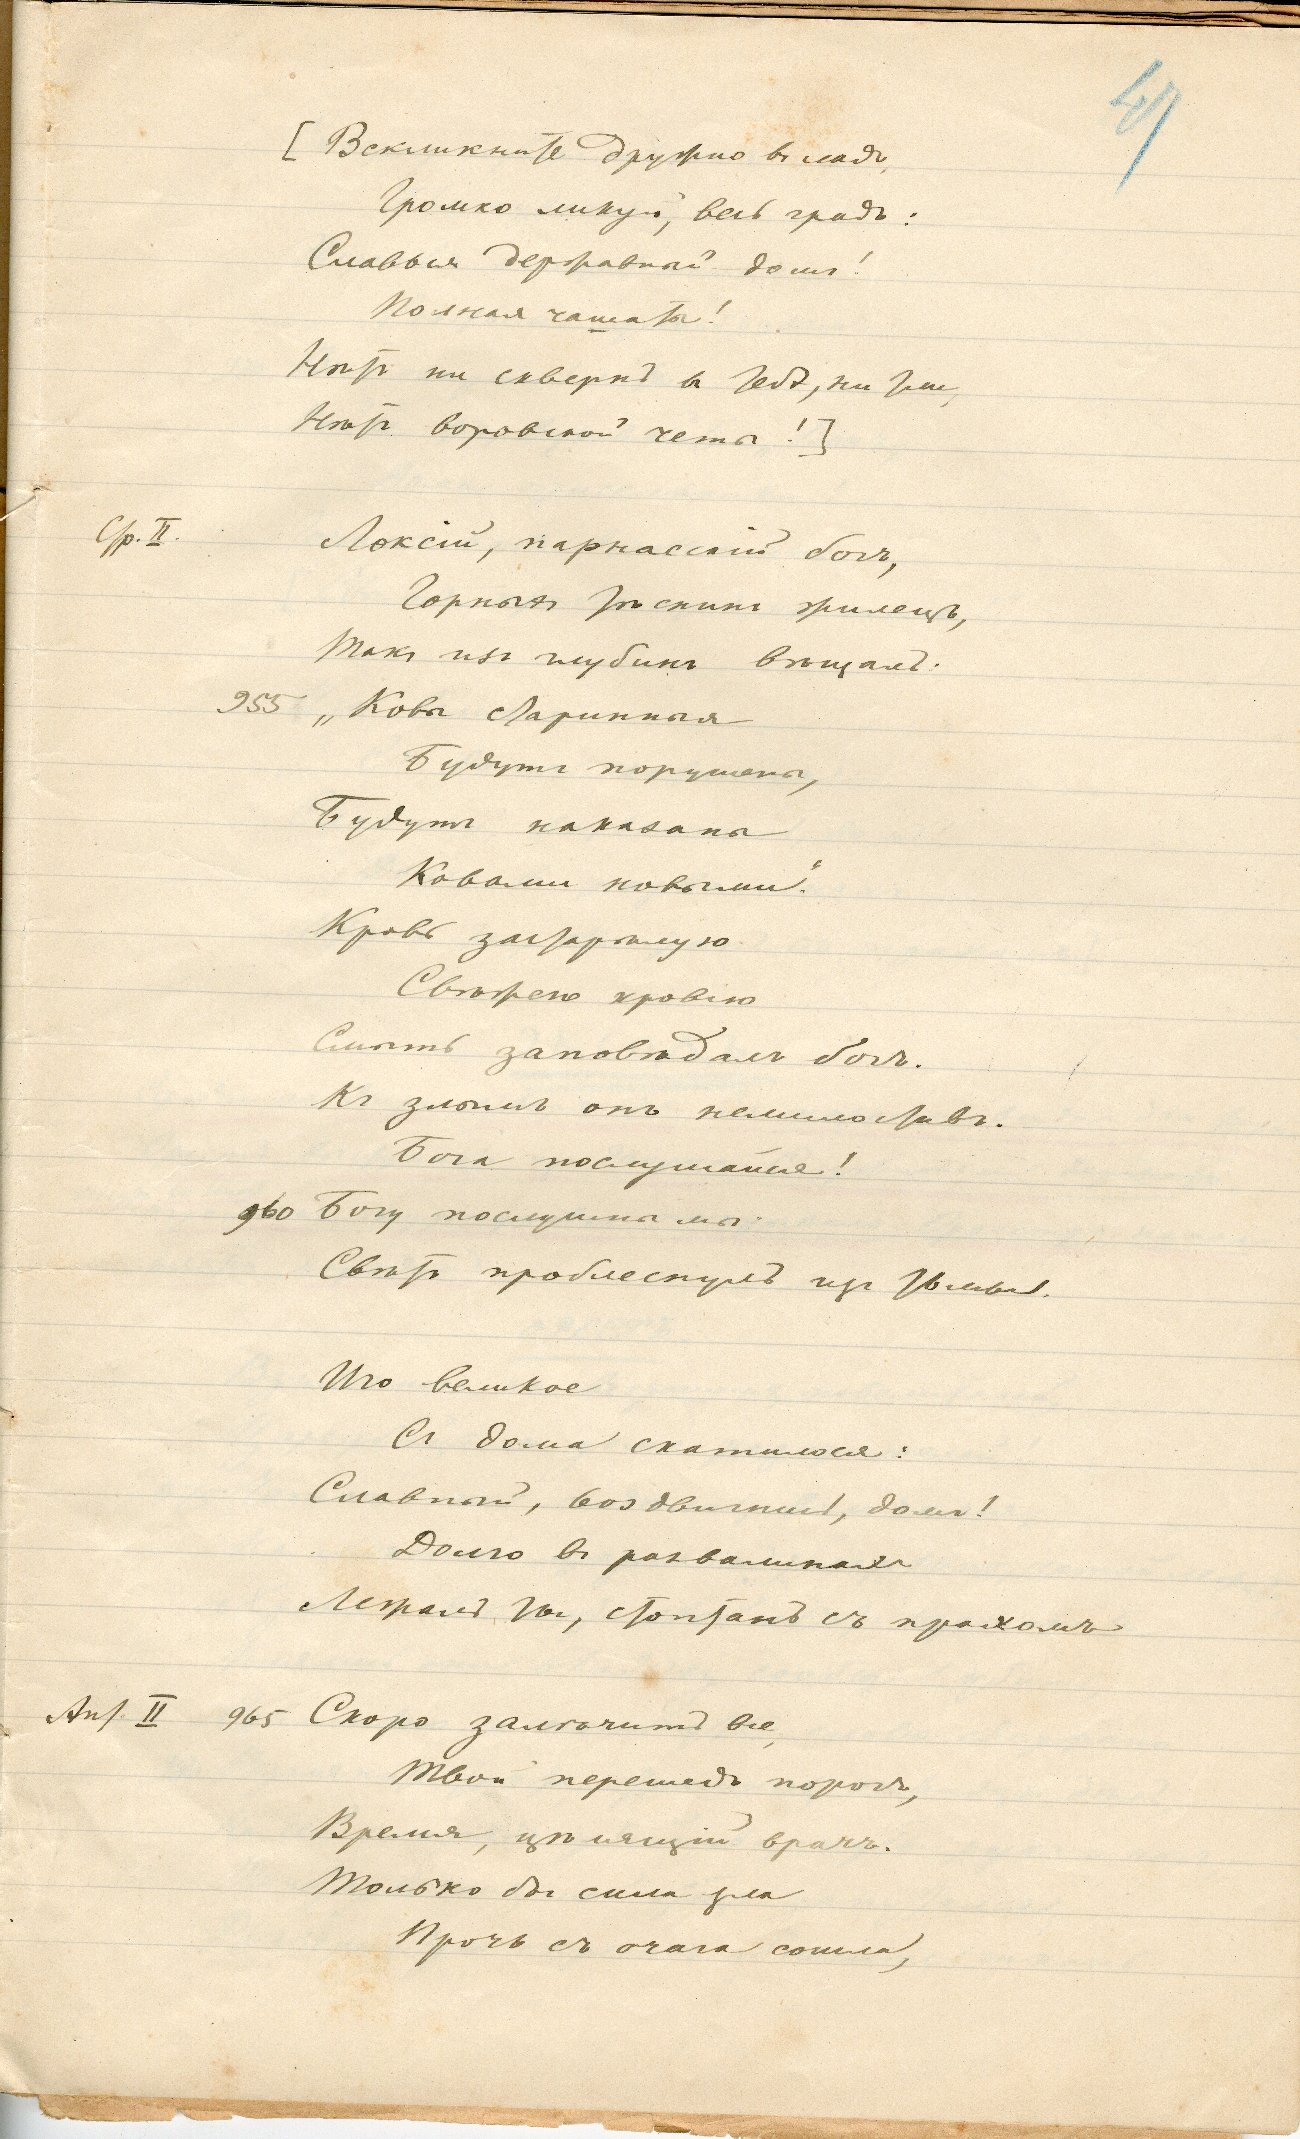 47
[ Воскликните дружно в ладъ,
Громко ликуй, весь градъ:
Славься державный домъ!
Полная чаша ты!
Нѣтъ ни сквернъ въ тебѣ, ни тли,
Нѣтъ воровской четы!]
Стр. II. Локсій, парнасскій богъ,
Горныхъ тѣснинъ жилецъ,
Такъ изъ глубинъ вѣщалъ:
955 „Ковы старинныя
Будутъ порушены,
Будутъ наказаны
Ковами новыми".
Кровь застарѣлую
Свѣжею кровію
Смыть заповѣдалъ богъ.
Къ злымъ онъ немилостивъ.
Бога послушайся!
960 Богу послушны мы:
Свѣтъ проблеснулъ изъ тьмы.
Иго великое
Съ дома скатилося:
Славный, воздвигнись, домъ!
Долго въ развалинахъ
Лежалъ ты, стоптанъ съ прахомъ
Ант. II 965 Скоро залѣчитъ все,
Твой перешедъ порогъ,
Время, цѣлящій врачъ.
Только бы сила зла
Прочь съ очага сошла,